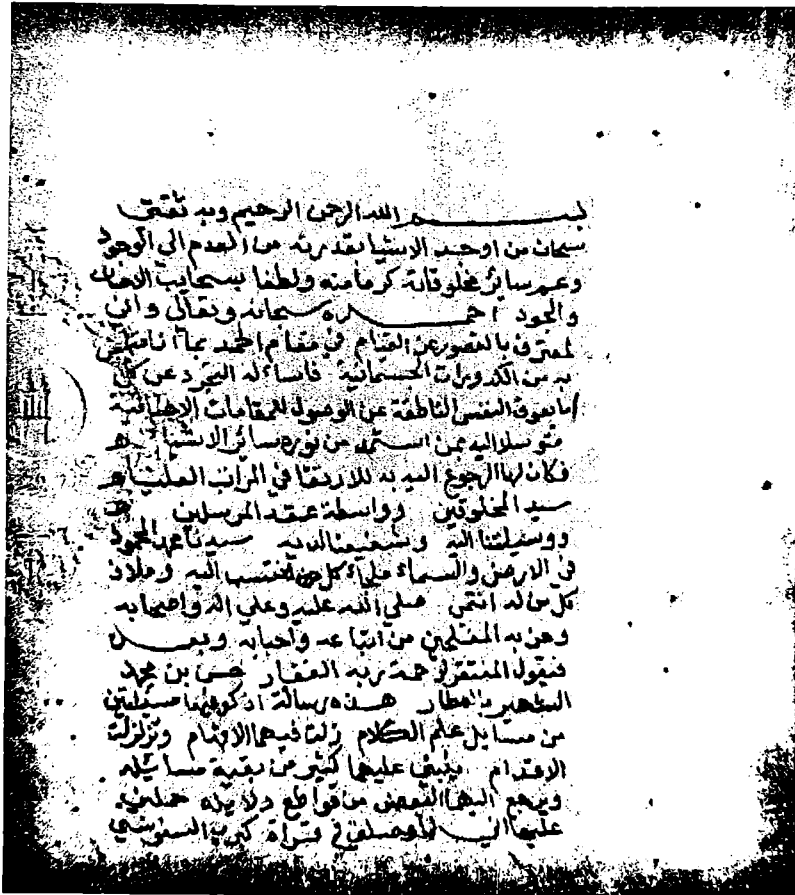 بسم الله الرحمن الرحيم وبه ثقتي
سبحان من اوجد الاشيا بقدرته من العدم الي الوجود
وعم سائر مخلوقاته كرما منه ولطفا بسحايب الاحسان
والجود احمده سبحانه وتعالي واني
لمعترف بالقصور عن القيام في مقام الحمد بما انا متلبس
به من الكدورات الجسمانية فاسأله التجرد عن كل
ما يعوق النفس الناطقة عن الوصول للمقامات الاحسانية
متوسلا اليه بمن استمد من نوره سائر الاشيا
فكان لها الرجوع اليه به للارتقا في المراتب العليا
سيد المخلوقين وواسطة عقد المرسلين
ووسيلتنا اليه وشفيعنا لديه سيدنا محمد المحمود
في الارض والسماء ملجاء كل من انتسب اليه وملاذ
كل من له انتمي صلي الله عليه وعلي اله واصحابه
ومن به المفلحين من اتباعه واحبابه وبعد
فيقول المفتقر لرحمة ربه الغفار حسن بن محمد
الشهير بالعطار هذه رسالة اذكر فيها مسئلتين
من مسايل علم الكلام زلت فيهما الاقدام وتزلزلت
الاقدام ينبني عليهما كثير من بقية مسائيله
ويرجع اليهما البعض من قواطع دلايله حملني
عليها اني لما وصلت في قراة كبري السنوسي